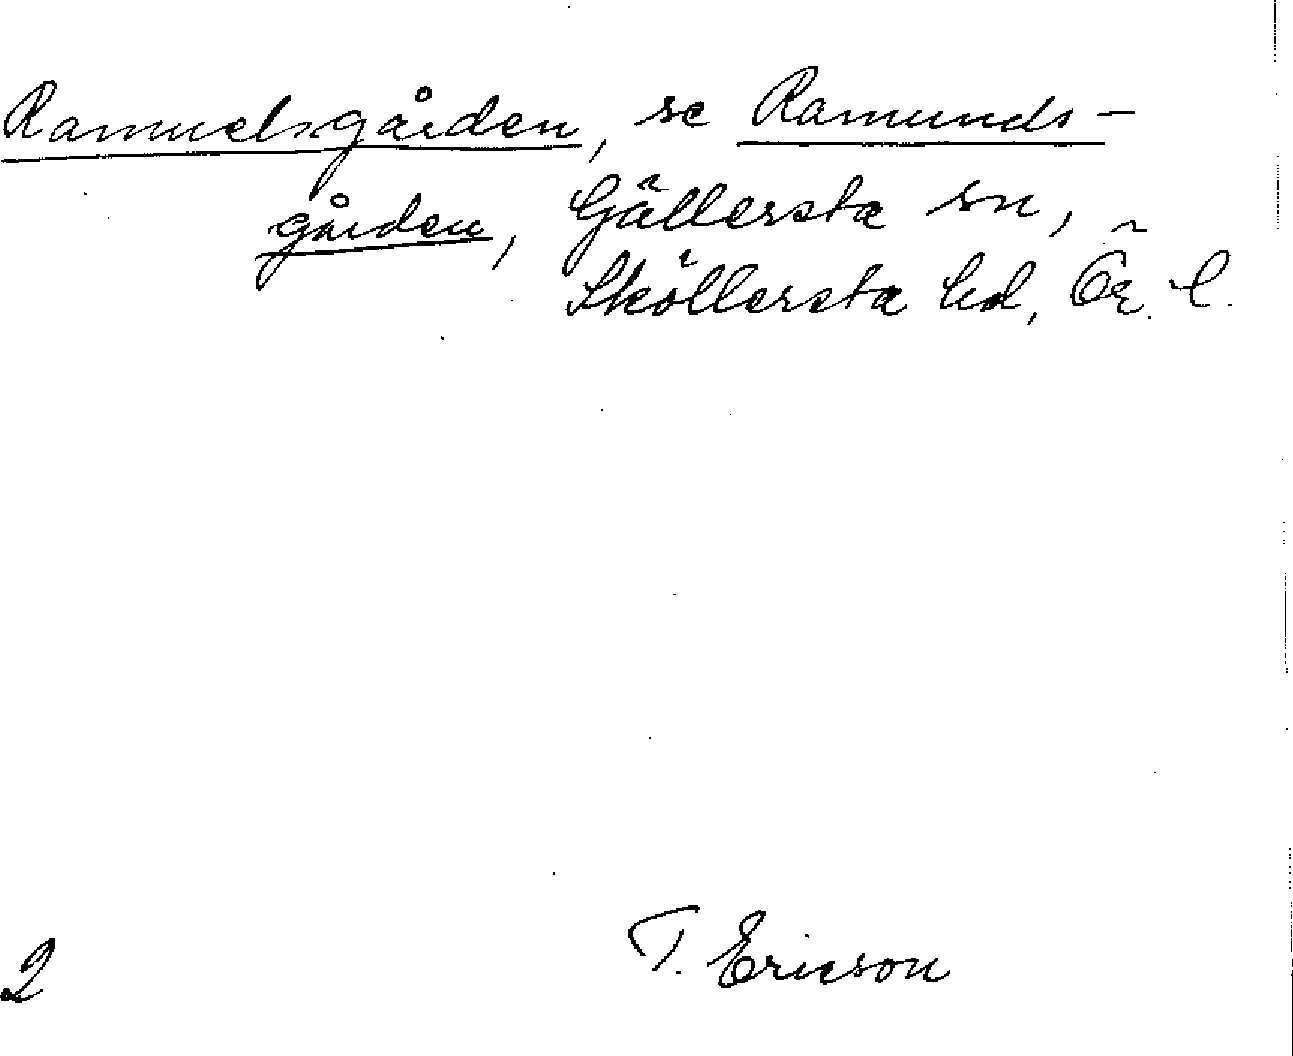 Ramuelsgården, se Ramunds-
gården, Gällersta sn,
Sköllersta hd, Ör. l.
2 T. Ericson